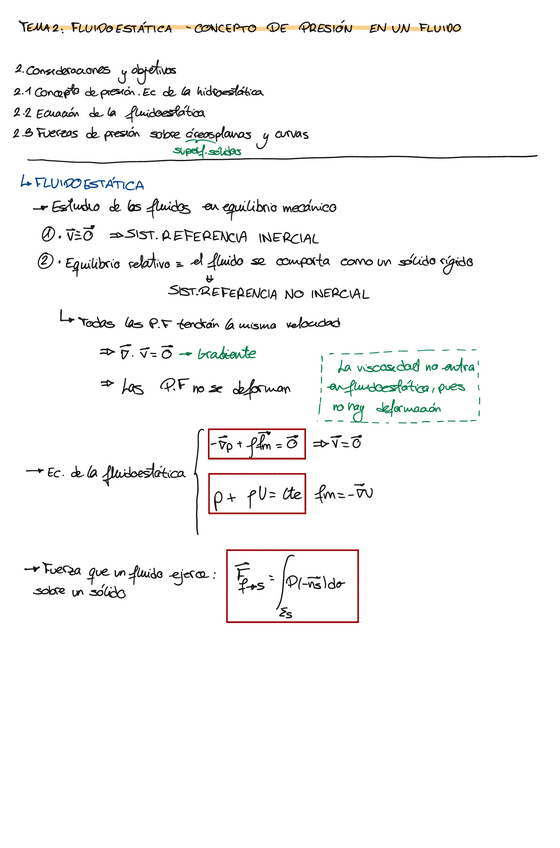 TEMA 2: FLUIDOESTÁTICA - CONCEPTO DE PRESIÓN EN UN FLUIDO
2. Consideraciones y objetivos
2.1 Concepto de presión. Ec de la hidroestática
2.2 Ecuación de la fluidoestática
2.3 Fuerzas de presión sobre áreas planas y curvas
superf. sólidas
↳ FLUIDOESTÁTICA
→ Estudio de los fluidos en equilibrio mecánico
①· v̄≡0⃗ ⇒ SIST. REFERENCIA INERCIAL
②· Equilibrio relativo ≡ el fluido se comporta como un sólido rígido
⇓
SIST. REFERENCIA NO INERCIAL
↳ Todas las P.F tendrán la misma velocidad
⇒ ∇⃗ · v̄ = 0⃗ → Gradiente
⇒ Las P.F no se deforman
La viscosidad no entra
en fluidoestática, pues
no hay deformación
→ Ec. de la fluidoestática
-∇⃗p + ρf⃗m = 0⃗ ⇒ v̄ = 0⃗
p + ρU = cte fm = -∇⃗U
→ Fuerza que un fluido ejerce:
sobre un sólido
F⃗f→s = ∫Σs P(-n⃗s)dσ